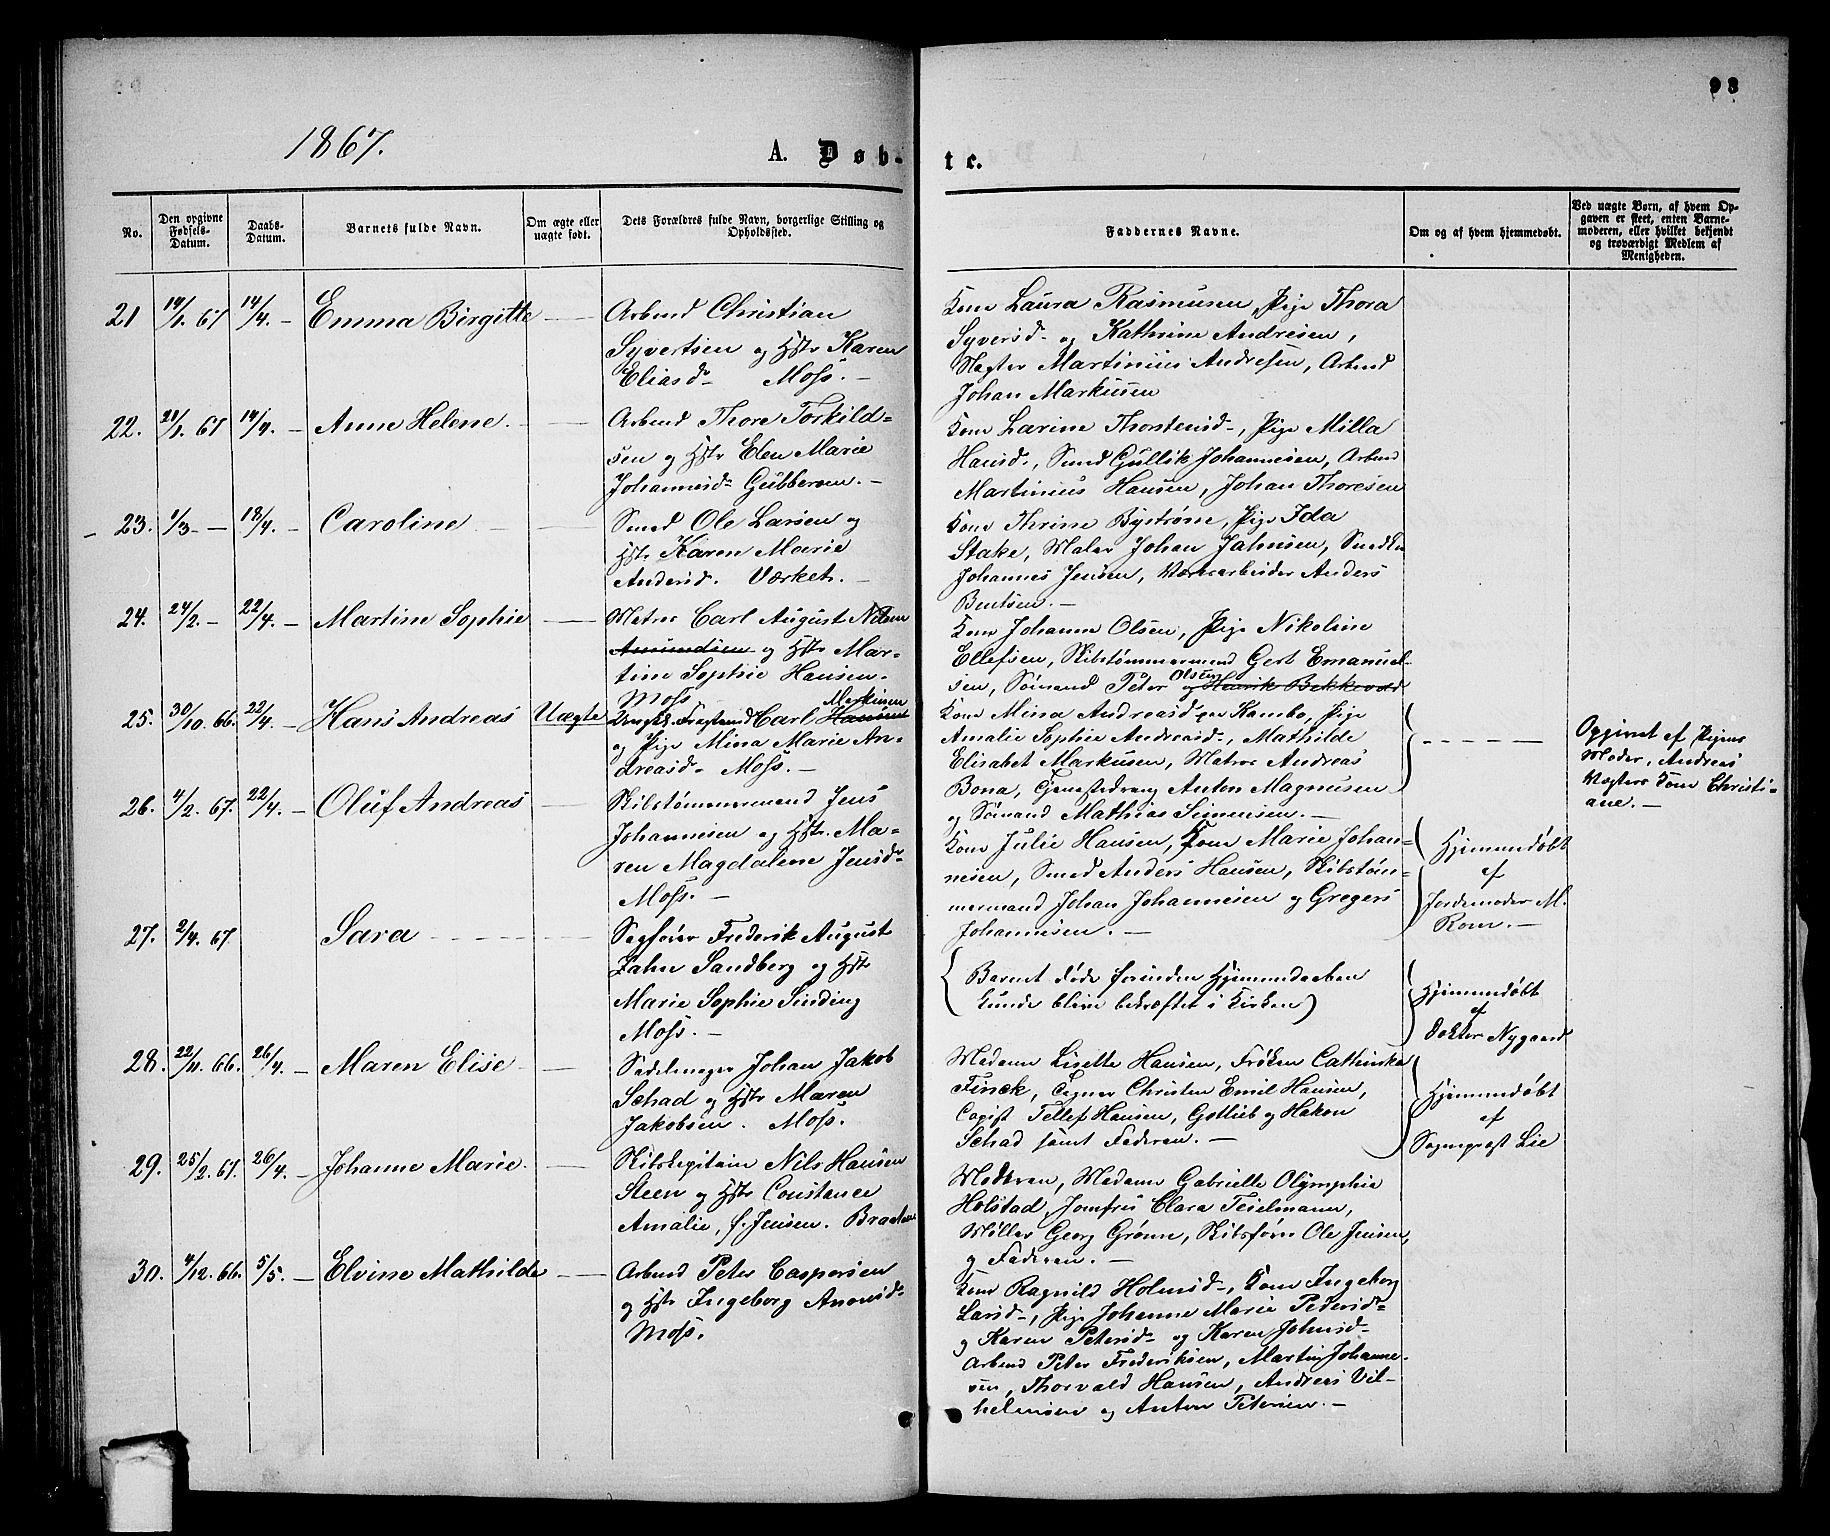 98
1867.
A. Døb-
te.
No.
Den opgivne Fødsels-Datum.
Daabs-Datum.
Barnets fulde Navn.
Om ægte eller uægte født.
Dets Forældres fulde Navn, borgerlige Stilling og Opholdssted.
Faddernes Navne.
Om og af hvem hjemmedøbt.
Ved uægte Børn, af hvem Op-
gaven er skeet, enten Barne-
moderen, eller hvilket bekjendt
og troværdigt Medlem af
Menigheden.
21 14/1. 67 14/4. – Emma Birgitte
Arbmd Christian
Syvertsen og Hstr Karen
Eliasd. Moss. –
Kone Laura Rasmusen, Pige Thora
Syversd. og Kathrine Andresen,
Martinius Andresen, Arbmd
Johan Markusen
22. 21/1. 67 14/4. – Anne Helene.
Arbmd Thore Torkild-
sen og Hstr Elen Marie
Johannesd. Gubberøen. –
Kone Larine Thorstensd., Pige Milla
Hansd., Smed Gullik Johannesen, Arbmd
Martinius Hansen, Johan Thoresen
23. 1/3 – 18/4. – Caroline
Smed Ole Larsen og
Hstr Karen Marie
Andersd. Værket. –
Kone Thrine Byströne, Pige Ida
Stake, Maler Johan Jahnsen, Smed
Johannes Jensen, Værksarbeider Anders
Bentsen. –
24. 24/2. – 22/4. – Martine Sophie
Matros Carl August Nilsen
Amundsen og Hstr Mar-
tine Sophie Hansen.
Moss
Kone Johanne Olsen, Pige Nikoline
Ellefsen, Skibstømmermend Gert Emanuel-
sen, Sømand Peter Olsen og Henrik Bekkevold
25. 30/10. 66. 22/4. – Hans Andreas Uægte
Ungk. Carl Hansen Markusen
og Pige Mina Marie An-
dreasd. Moss. –
Kone Mina Andreasd paa Kambo, Pige
Amalie Sophie Andreasd., Mathilde
Elisabet Markusen, Matros Andreas
Bona, Anton Magnusen
og Sømand Mathias Simensen. –
Opgivet af Pigens
Moder, Andreas
Vægters Kone Christi-
ane. –
26. 4/2. 67. 22/4. – Oluf Andreas
Skibstømmermand Jens
Johannesen og Hstr. Ma-
ren Magdalene Jensd.
Moss. –
Kone Julie Hansen, Kone Marie Johan-
nesen, Smed Anders Hansen, Skibstøm-
mermand Johan Johannesen og Gregers
Johannesen. –
Hjemmedøbt
af
Jordemoder M.
Rom. –
27. 2/4. 67. Sara
Sagfører Frederik August
Zahn Sandberg og Hstr
Marie Sophie Sinding
Moss. –
Barnet døde forinden Hjemmedaaben
kunde blive bekræftet i Kirken
Hjemmedøbt
af
Doktor Nygaard
28. 22/11. 66. 26/4. – Maren Elise.
Sadelmager Johan Jakob
Schad og Hstr Maren
Jakobsen. Moss.
Madame Lisette Hansen, Frøken Cathinka
Finck, Christen Emil Hansen,
Copist Tellef Hansen, Gottlieb og Hakon
Schad samt Faderen. –
Hjemmedøbt
af
Sogneprest Lie
29. 25/2. 67. 26/4. – Johanne Marie.
Skibskapitain Nils Hansen
Steen og Hstr Constance
Amalie, f. Jensen.
Moderen, Madame Gabrielle Olymphia
Holstad, Jomfru Clara Teielmann,
Møller Georg Grønn, Skibsfører Ole Jensen,
og Faderen. –
30. 4/12. 66. 5/5. – Elvine Mathilde
Arbmd Peter Caspersen
og Hstr Ingeborg Aronsd.
Moss.
Kone Ragnild Holmsd., Kone Ingeborg
Larsd., Pige Johanne Marie Pedersd.
og Karen Petersd. og Karen Johnsd.
Arbmd Peter Frederiksen, Martin Johanne-
sen, Thorvald Hansen, Andreas Vil-
helmsen og Anton Petersen. –